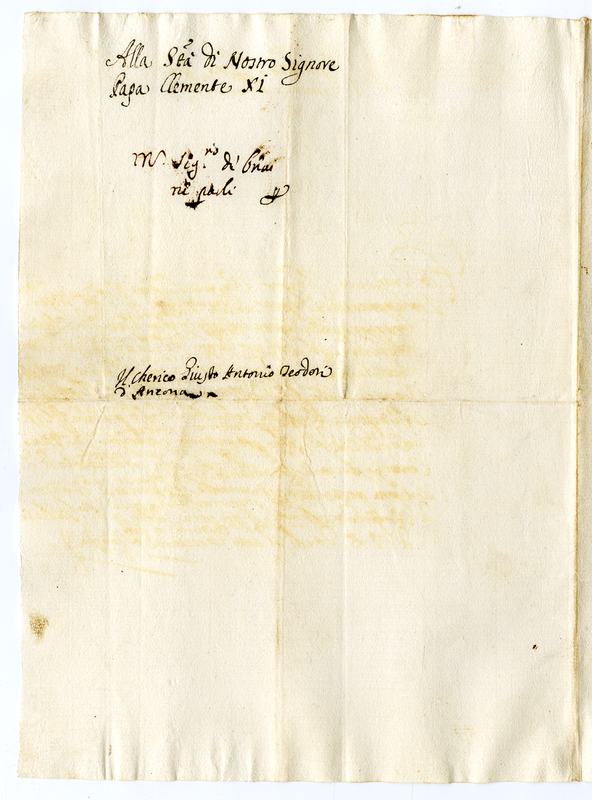 Alla Stà di Nostro Signore
Papa Clemente XI
Mr. Sigrio di
ne parli
Il Cherico Giusto Antonio Teodori
d'Ancona